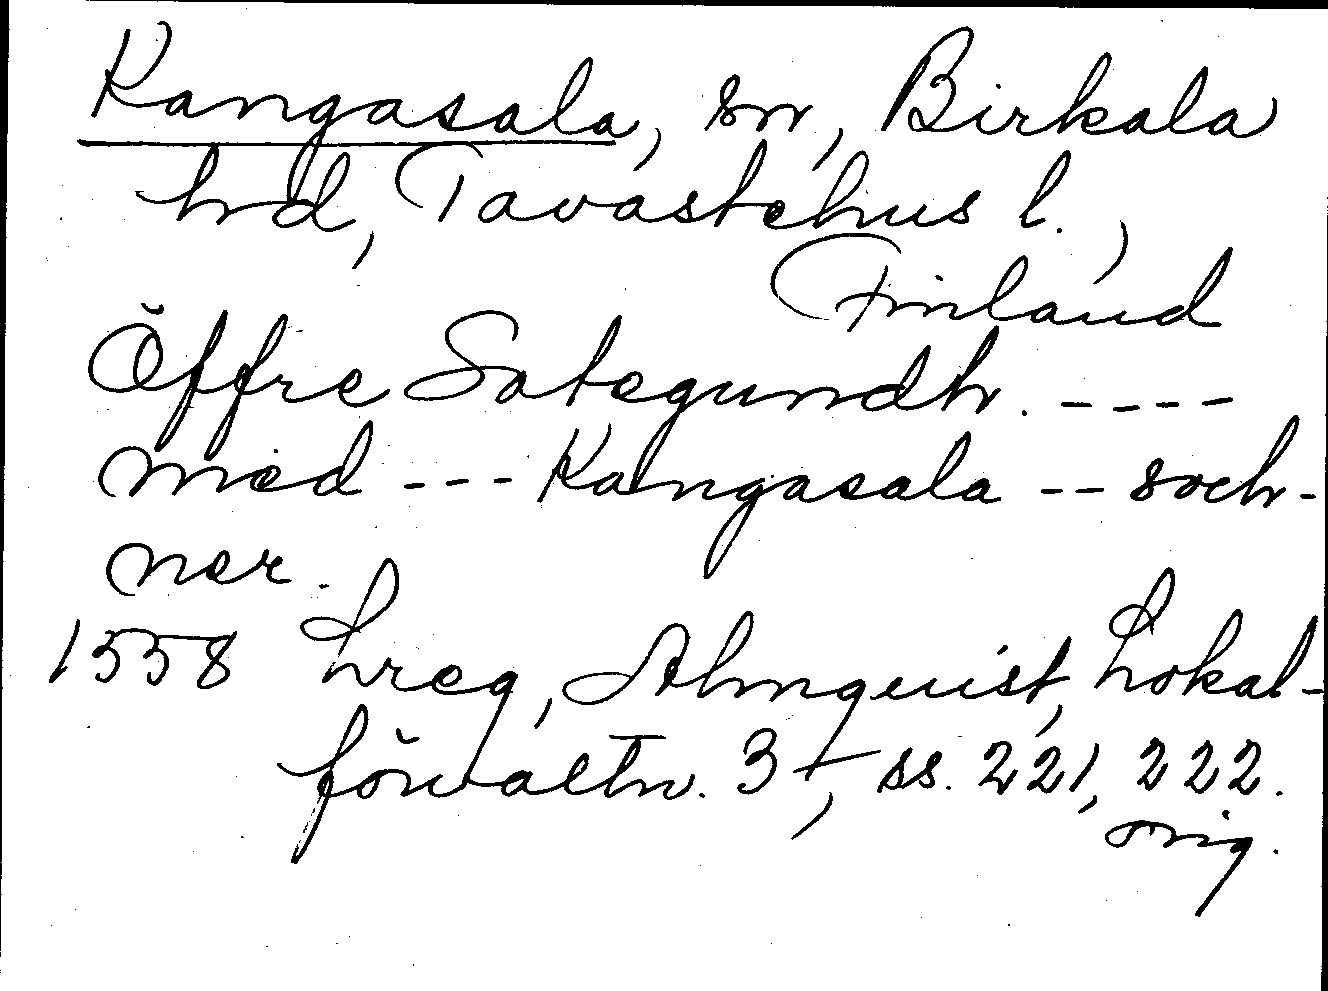 Kangasala, sn, Birkala
hrd, Tavastehus l.,
Finland
Öffre Sategundh. ----
med --- Kangasala -- soch-
ner.
1558 Lreg, Almquist, Lokal-
förvaltn. 3 t, ss. 221, 222.
orig.